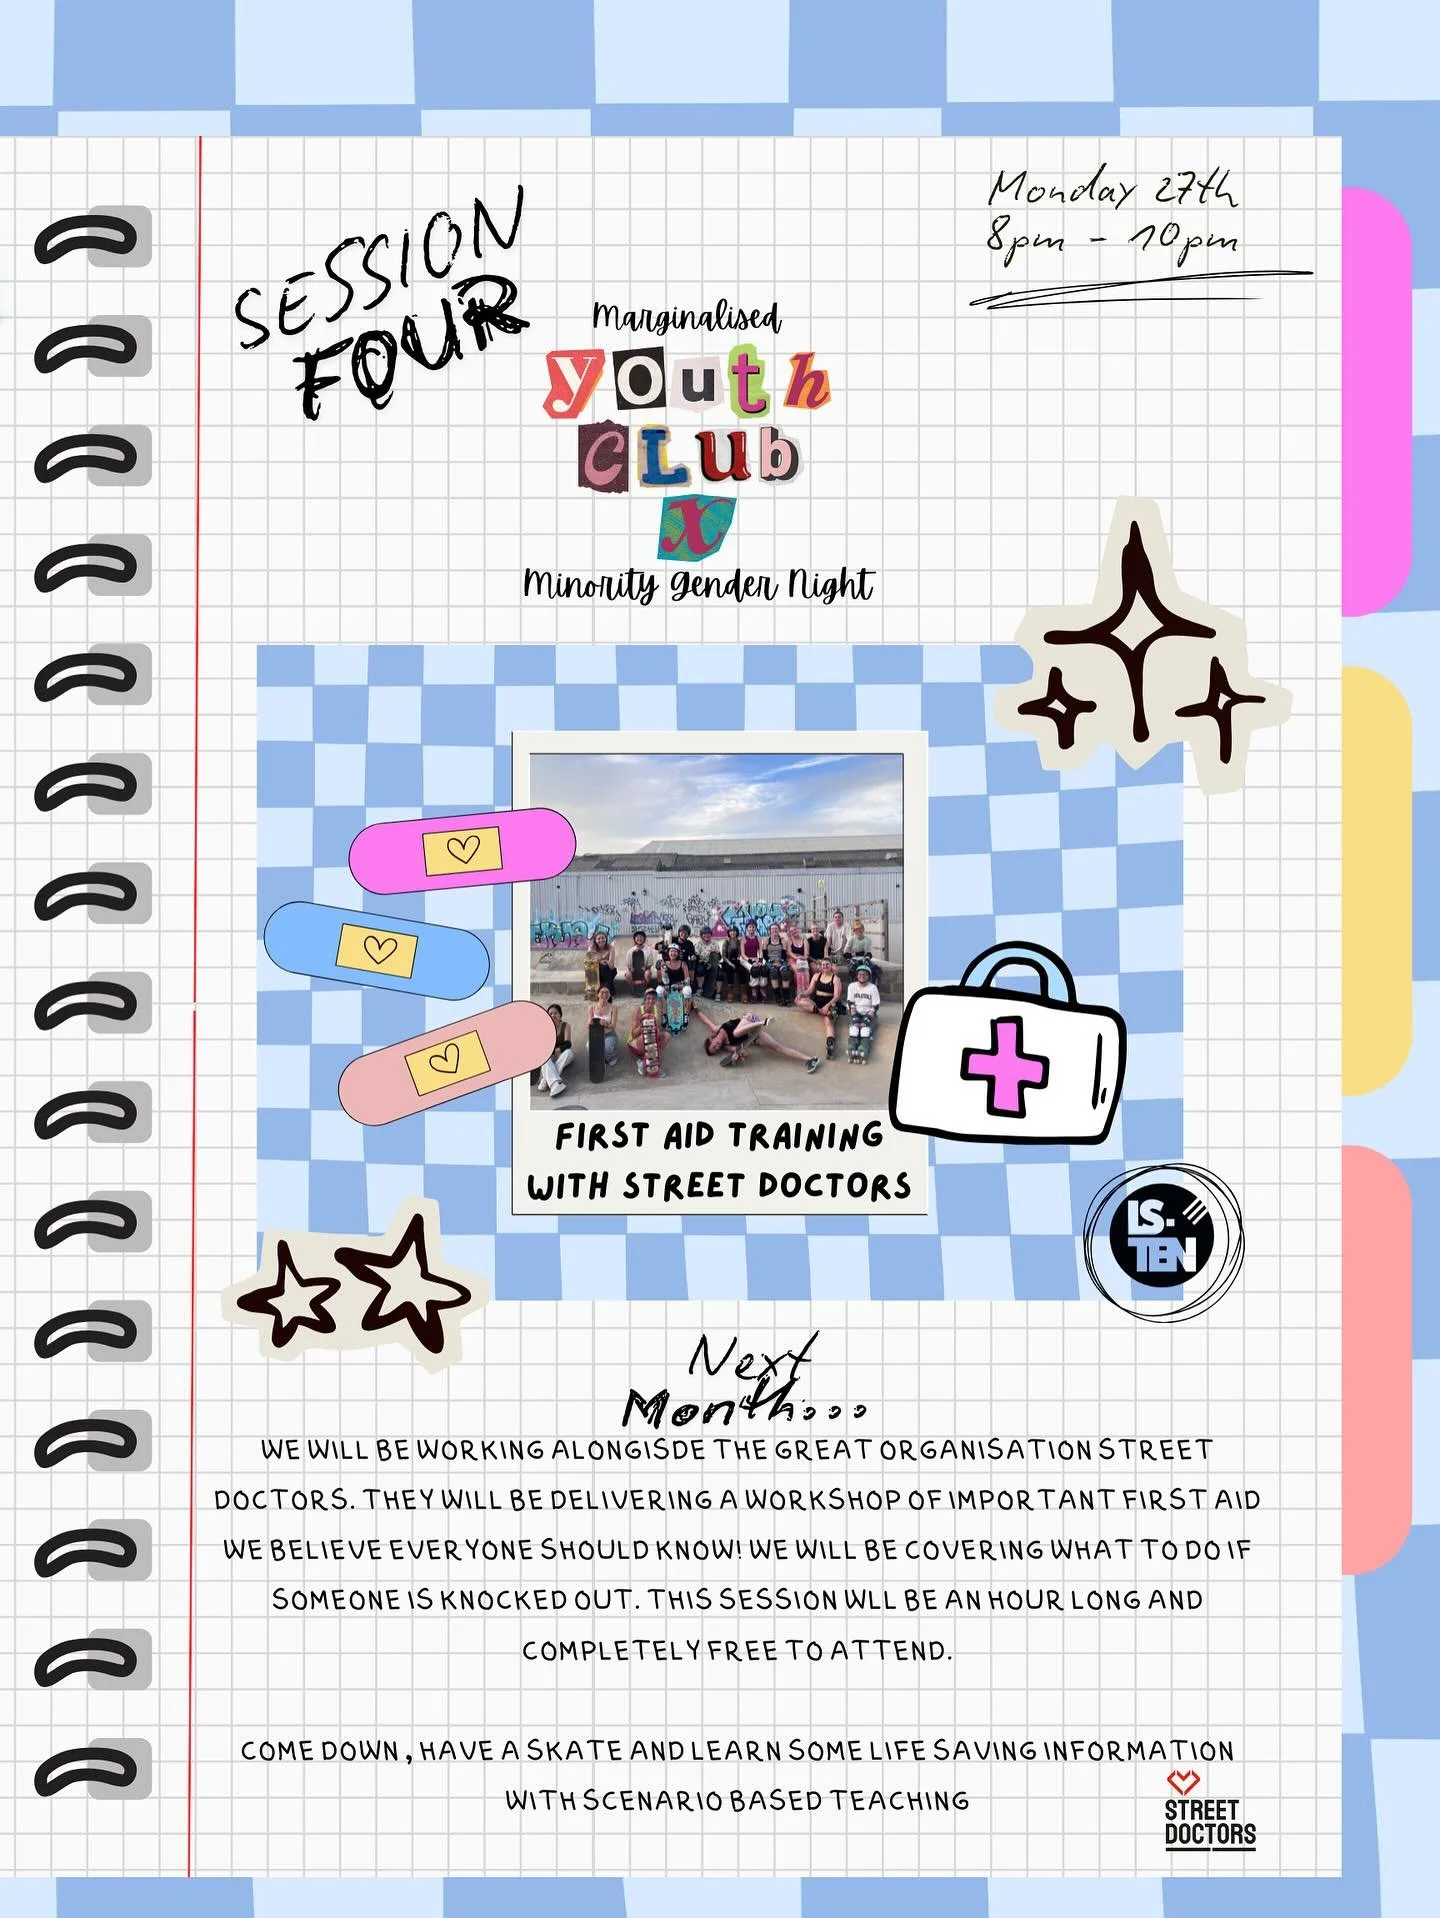 SESSION
FOUR
Monday 27th
8pm - 10pm
Marginalised
youth
CLub
x
Minority gender Night
FIRST AID TRAINING
WITH STREET DOCTORS
LS-
TEN
Next
Month...
WE WILL BE WORKING ALONGISDE THE GREAT ORGANISATION STREET
DOCTORS. THEY WILL BE DELIVERING A WORKSHOP OF IMPORTANT FIRST AID
WE BELIEVE EVERYONE SHOULD KNOW! WE WILL BE COVERING WHAT TO DO IF
SOMEONE IS KNOCKED OUT. THIS SESSION WLL BE AN HOUR LONG AND
COMPLETELY FREE TO ATTEND.
COME DOWN, HAVE A SKATE AND LEARN SOME LIFE SAVING INFORMATION
WITH SCENARIO BASED TEACHING
STREET
DOCTORS